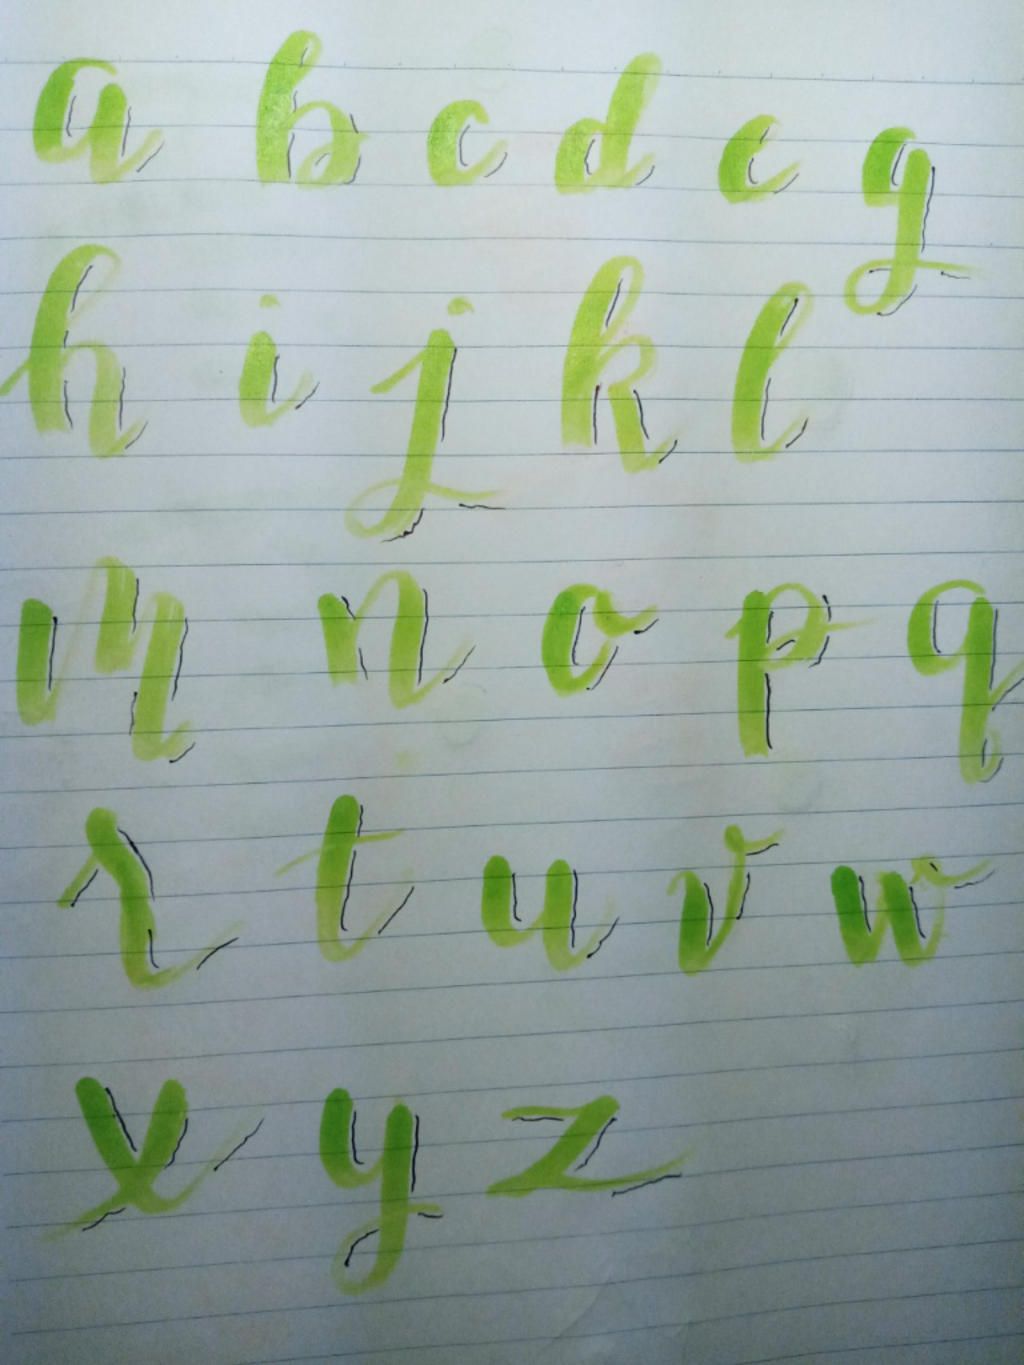 a b c d e g
h i j k l
m n o p q
t u v w
x y z